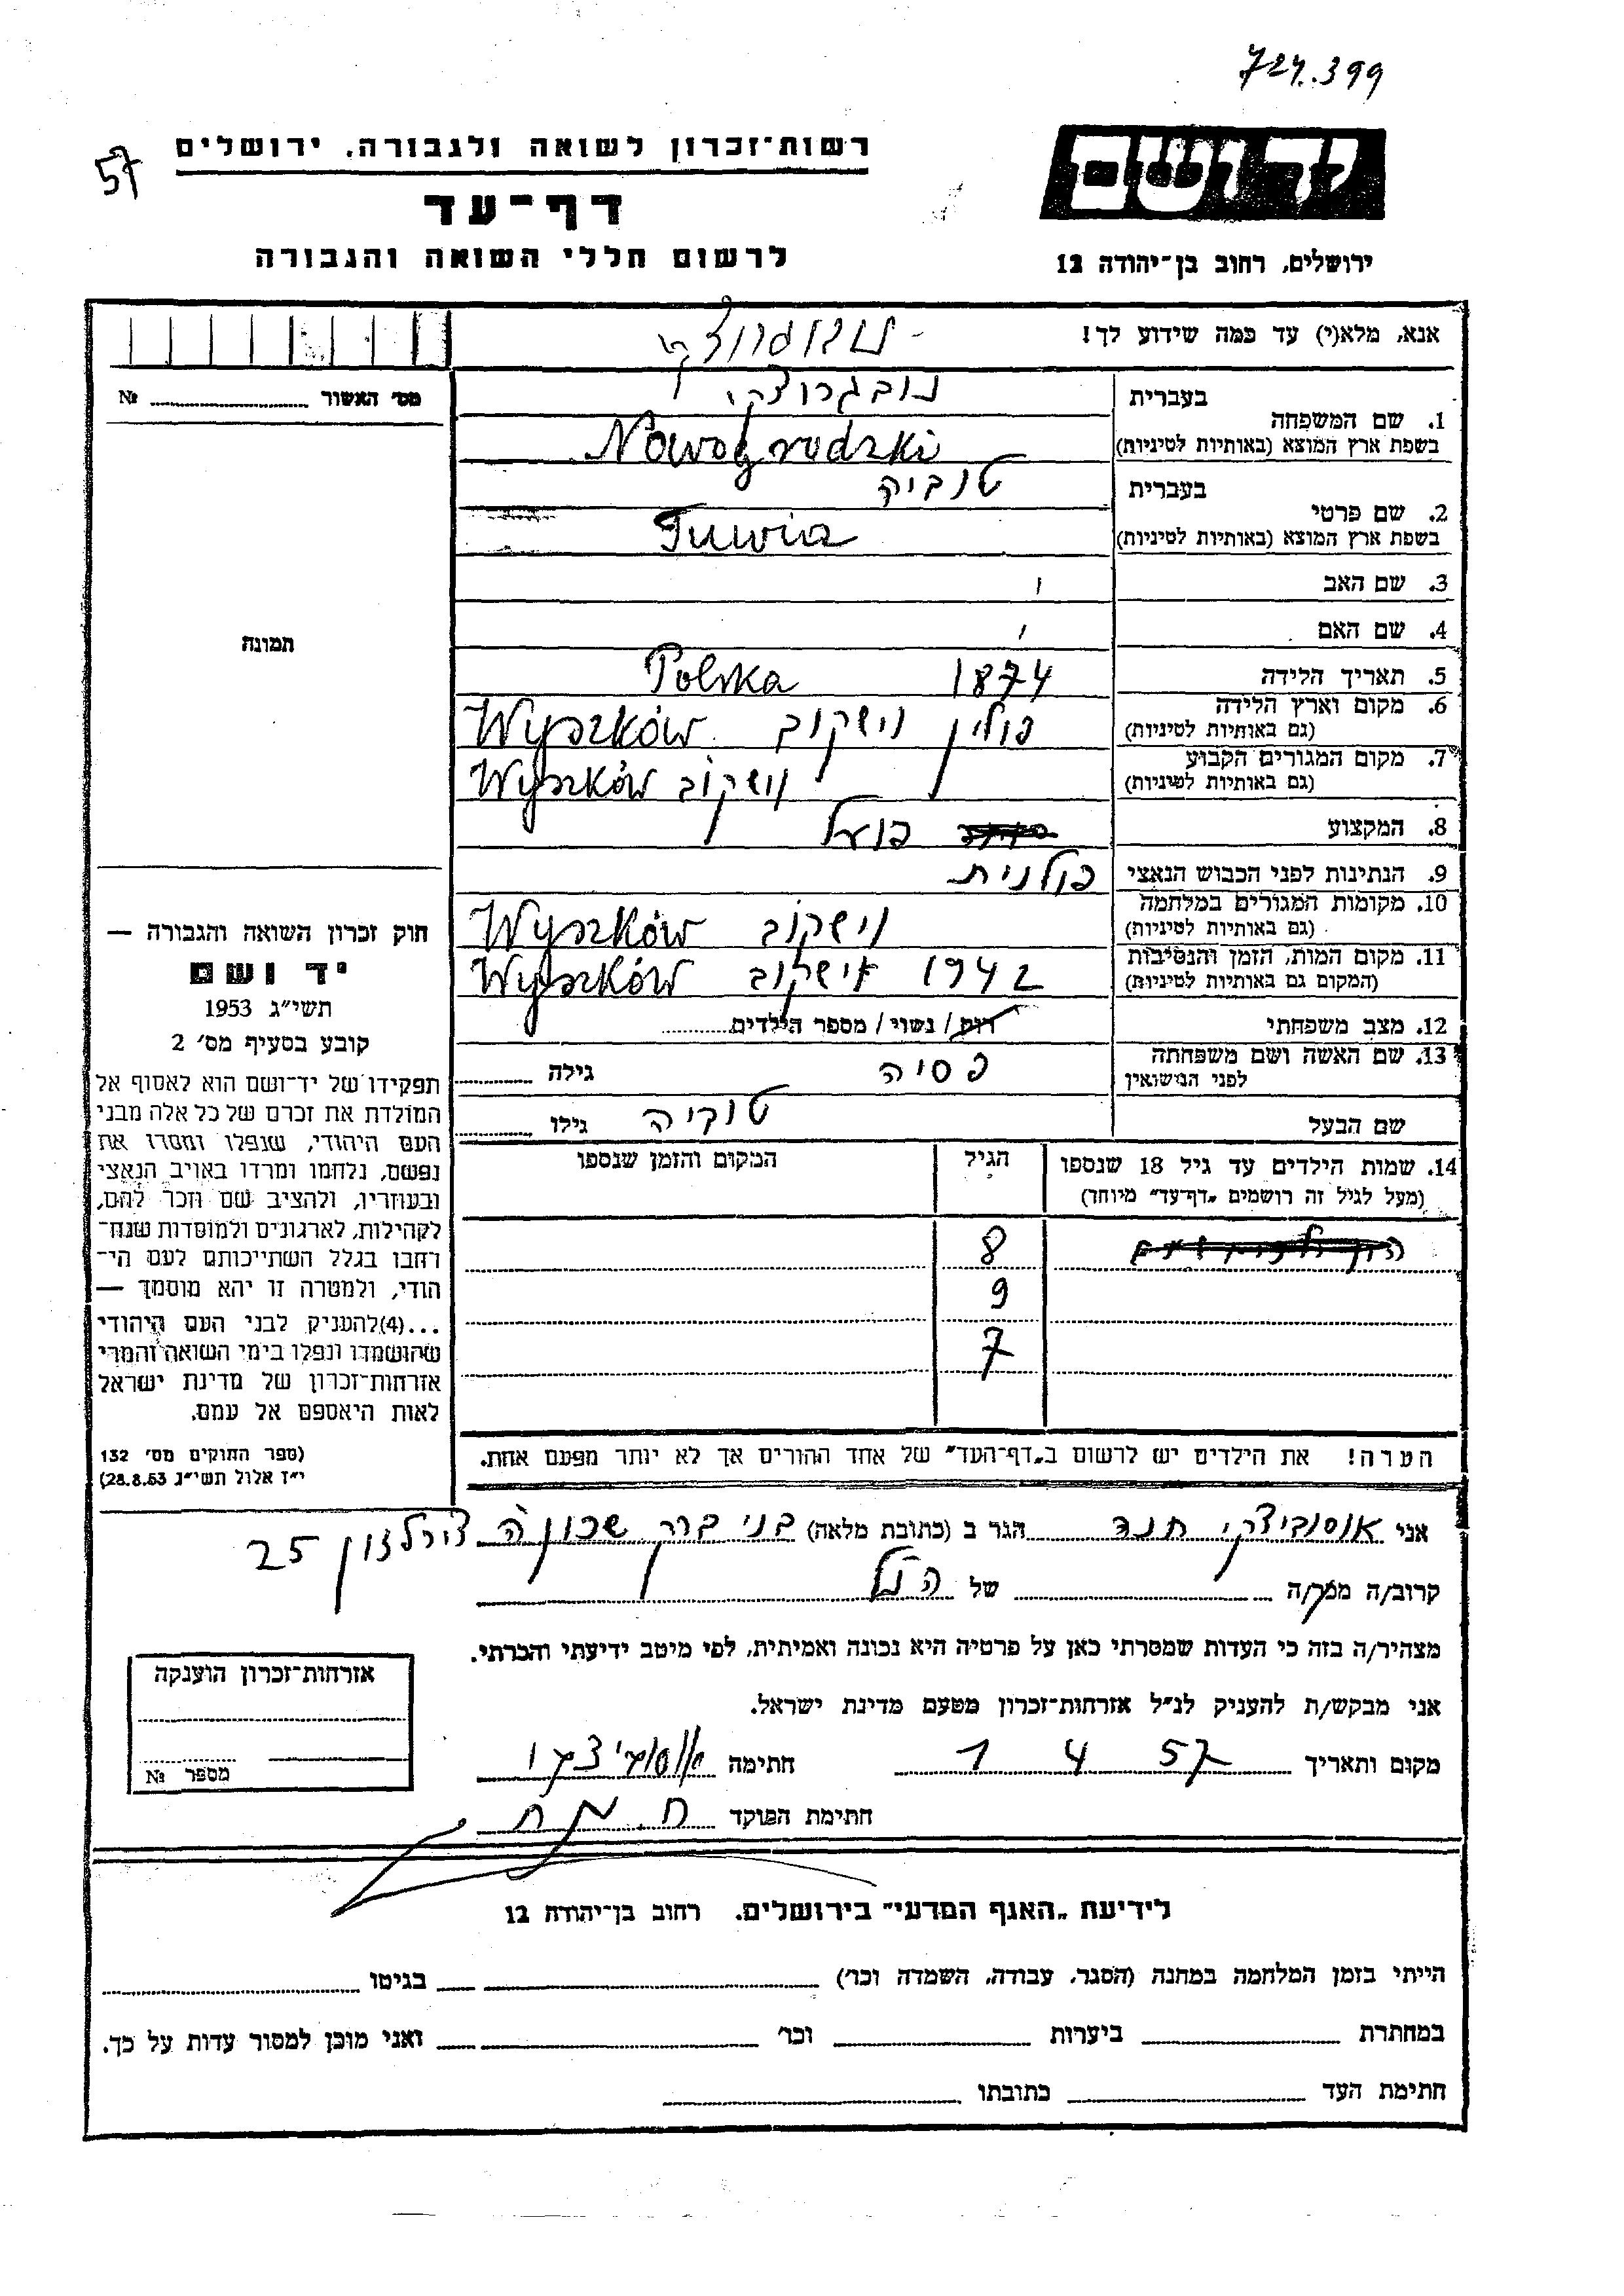 724.399
57
רשות־זכרון לשואה ולגבורה, ירושלים
דף־עד
לרשום חללי השואה והגבורה
יד ושם
ירושלים, רחוב בן־יהודה 12
אנא, מלא(י) עד כמה שידוע לך!
נובוגרודצקי
מס' האשור № 
1. שם המשפחה
בעברית נובגרודצקי
בשפת ארץ המוצא (באותיות לטיניות) Nowogrudzki
2. שם פרטי
בעברית טוביה
בשפת ארץ המוצא (באותיות לטיניות) Tuwia
3. שם האב
4. שם האם
תמונה
5. תאריך הלידה 1874 Polska
6. מקום וארץ הלידה (גם באותיות לטיניות) פולין וישקוב Wyszków
7. מקום המגורים הקבוע (גם באותיות לטיניות) וישקוב Wyszków
8. המקצוע פועל
9. הנתינות לפני הכבוש הנאצי פולנית
10. מקומות המגורים במלחמה (גם באותיות לטיניות) וישקוב Wyszków
11. מקום המות, הזמן והנסיבות (המקום גם באותיות לטיניות) 1942 וישקוב Wyszków
12. מצב משפחתי רווק / נשוי / מספר הילדים
13. שם האשה ושם משפחתה לפני הנישואין פסיה גילה
שם הבעל טוביה גילו
14. שמות הילדים עד גיל 18 שנספו
(מעל לגיל זה רושמים „דף־עד” מיוחד)
הגיל
המקום והזמן שנספו
8
9
7
הערה! את הילדים יש לרשום ב„דף־העד” של אחד ההורים אך לא יותר מפעם אחת.
חוק זכרון השואה והגבורה —
יד ושם
תשי״ג 1953
קובע בסעיף מס' 2
תפקידו של יד־ושם הוא לאסוף אל
המולדת את זכרם של כל אלה מבני
העם היהודי, שנפלו ומסרו את
נפשם, נלחמו ומרדו באויב הנאצי
ובעוזריו, ולהציב שם וזכר להם,
לקהילות, לארגונים ולמוסדות שנח־
רבו בגלל השתייכותם לעם הי־
הודי, ולמטרה זו יהא מוסמך —
...(4)להעניק לבני העם היהודי
שהושמדו ונפלו בימי השואה והמרי
אזרחות־זכרון של מדינת ישראל
לאות היאספם אל עמם.
(ספר החוקים מס' 132
י״ז אלול תשי״ג 28.8.53)
אני אוסוביצקי חנה הגר ב (כתובת מלאה) בני ברק שכונה ה 25
קרוב/ה מכר/ה של הנ״ל
מצהיר/ה בזה כי העדות שמסרתי כאן על פרטיה היא נכונה ואמיתית, לפי מיטב ידיעתי והכרתי.
אני מבקש/ת להעניק לנ״ל אזרחות־זכרון מטעם מדינת ישראל.
מקום ותאריך 1 4 57 חתימה אוסוביצקי
חתימת הפוקד
אזרחות־זכרון הוענקה
מספר №
לידיעת „האגף המדעי” בירושלים, רחוב בן־יהודה 12
הייתי בזמן המלחמה במחנה (הסגר, עבודה, השמדה וכו') בגיטו
במחתרת ביערות וכו' ואני מוכן למסור עדות על כך.
חתימת העד כתובתו